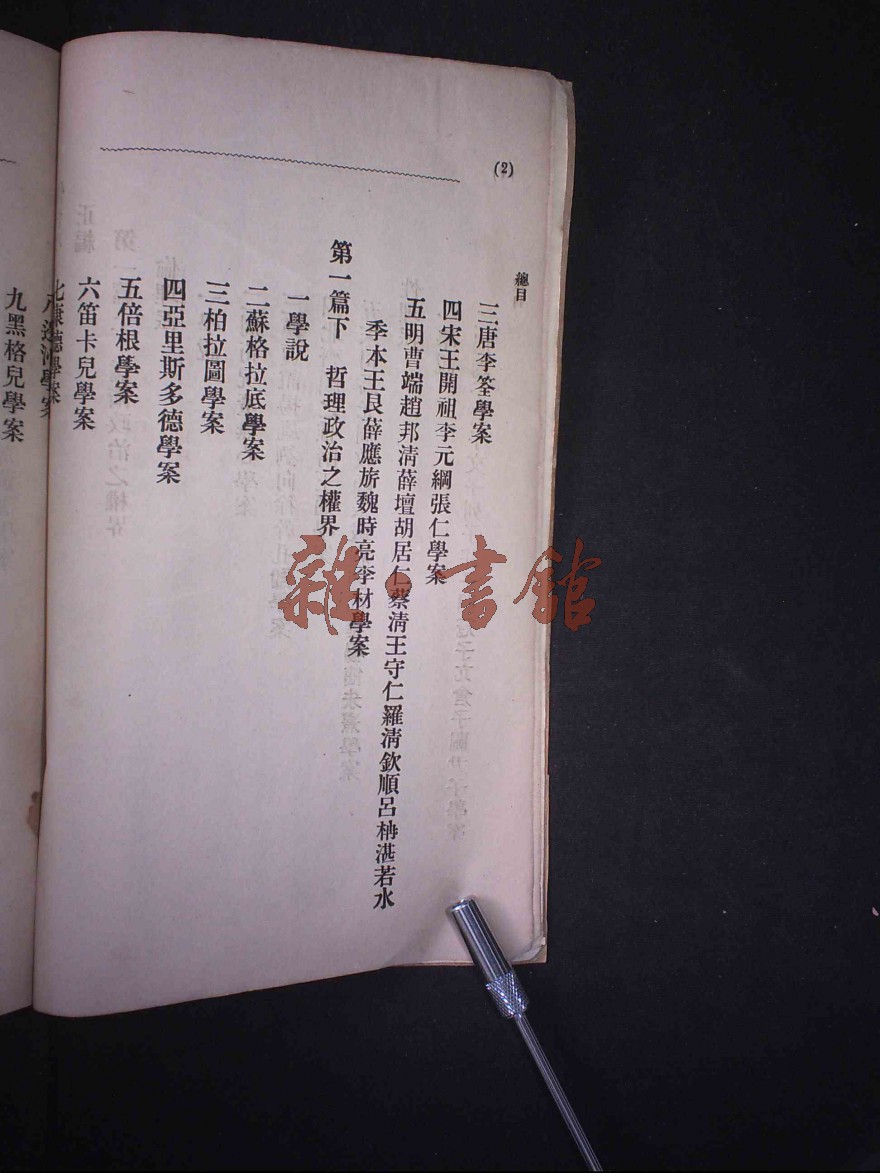 (2)
總目
三唐李筌學案
四宋王開祖李元綱張仁學案
五明曹端趙邦淸薛壇胡居仁蔡淸王守仁羅淸欽順呂柟湛若水
季本王艮薛應旂魏時亮李材學案
第一篇下 哲理政治之權界
一學說
二蘇格拉底學案
三柏拉圖學案
四亞里斯多德學案
五倍根學案
六笛卡兒學案
七康德學案
學案
九黑格兒學案
雜·書館